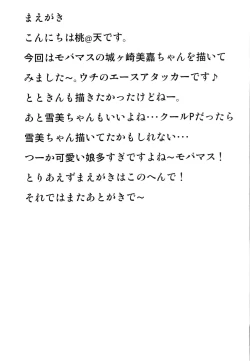 まえがき
こんにちは桃@天です。
今回はモバマスの城ヶ崎美嘉ちゃんを描いて
みました～。ウチのエースアタッカーです♪
とときんも描きたかったけどねー。
あと雪美ちゃんもいいよね･･･クールPだったら
雪美ちゃん描いてたかもしれない･･･
つーか可愛い娘多すぎですよね～モバマス！
とりあえずまえがきはこのへんで！
それではまたあとがきで～